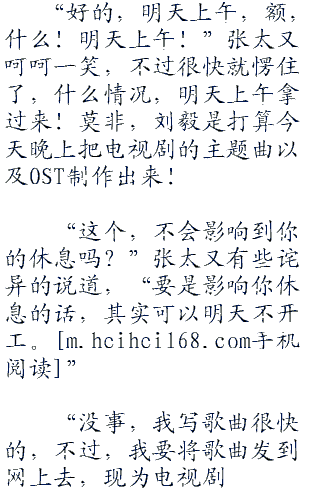 “好的，明天上午，额，
什么！明天上午！”张太又
呵呵一笑，不过很快就愣住
了，什么情况，明天上午拿
过来！莫非，刘毅是打算今
天晚上把电视剧的主题曲以
及OST制作出来！
“这个，不会影响到你
的休息吗？”张太又有些诧
异的说道，“要是影响你休
息的话，其实可以明天不开
工。[m.hcihci168.com手机
阅读]”
“没事，我写歌曲很快
的，不过，我要将歌曲发到
网上去，现为电视剧